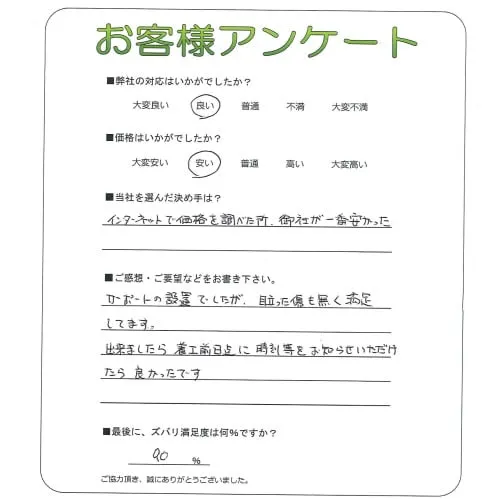 お客様アンケート
■弊社の対応はいかがでしたか？
大変良い 良い 普通 不満 大変不満
■価格はいかがでしたか？
大変安い 安い 普通 高い 大変高い
■当社を選んだ決め手は？
インターネットで価格を調べた所、御社が一番安かった
■ご感想・ご要望などをお書き下さい。
カーポートの設置でしたが、目立った傷も無く満足
してます。
出来ましたら着工前日点に時刻等をお知らせいただけ
たら良かったです
■最後に、ズバリ満足度は何%ですか？
90 %
ご協力頂き、誠にありがとうございました。